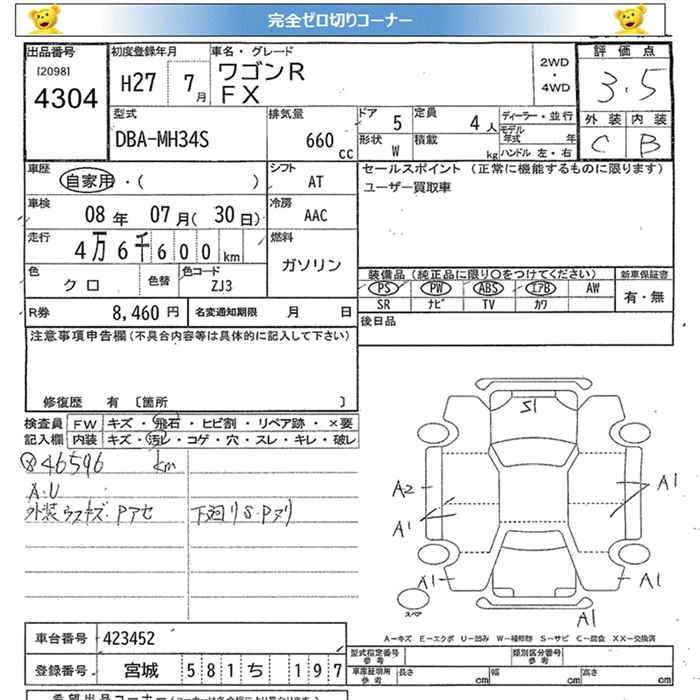 完全ゼロ切りコーナー
出品番号
[2098]
4304
初度登録年月
H27 7月
車名・グレード
ワゴンR
FX
2WD
・
4WD
評価点
3.5
外装 内装
C B
型式
DBA-MH34S
排気量
660 cc
ドア 5
定員 4人
形状 W
積載 kg
ディーラー・並行
モデル年式 年
ハンドル 左・右
車歴
自家用・( )
シフト
AT
車検
08年 07月(30日)
冷房
AAC
走行
4万6千600km
燃料
ガソリン
色
クロ
色替
色コード
ZJ3
R券 8,460円
名変通知期限 月 日
セールスポイント(正常に機能するものに限ります)
ユーザー買取車
装備品(純正品に限り○をつけてください)
PS PW ABS エアB AW
SR ナビ TV カワ
新車保証書
有・無
後日品
注意事項申告欄(不具合内容等は具体的に記入して下さい)
修復歴 有 〔箇所 〕
検査員記入欄
FW キズ・飛石・ヒビ割・リペア跡・×要
内装 キズ・汚レ・コゲ・穴・スレ・キレ・破レ
46596 km
A.U
外装ウスキズ・Pアセ
下廻りS・Pヌリ
S1
A2
A1
A1
A1
A1
A1
スペア
A-キズ E-エクボ U-凹み W-補修跡 S-サビ C-腐食 XX-交換済
車台番号 423452
登録番号 宮城 581 ち 197
型式指定番号
参考
類別区分番号
参考
車庫証明用
参考
長さ cm 幅 cm 高さ cm
希望出品コーナー